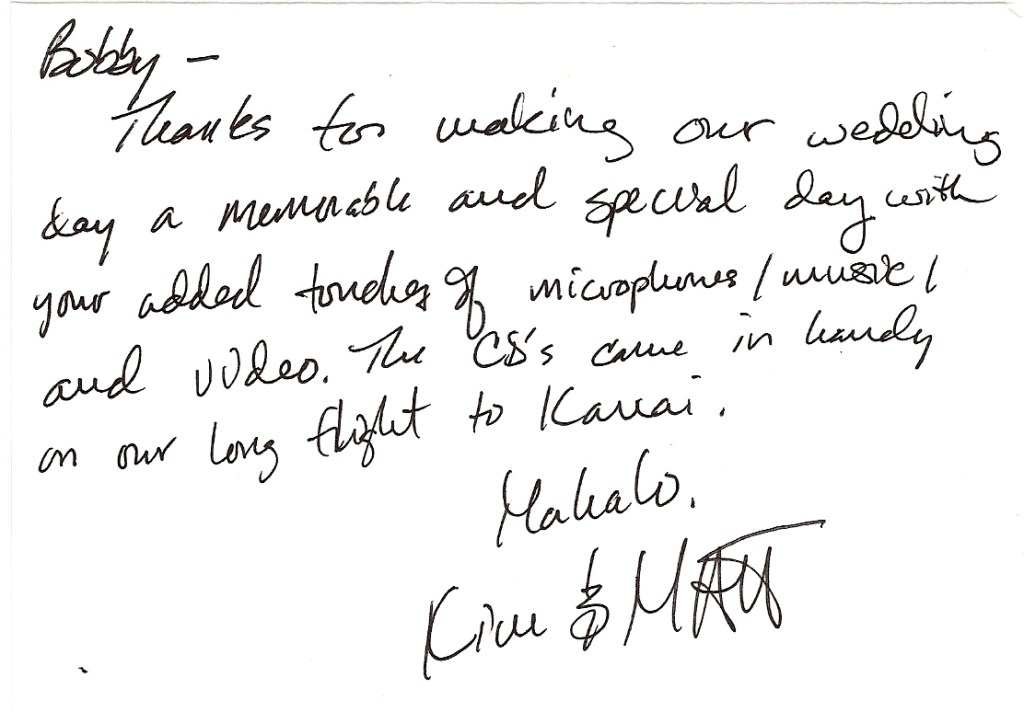 Bobby –
Thanks for making our wedding
day a memorable and special day with
your added touches of microphones/music/
and video. The CD's came in handy
on our long flight to Kauai.
Mahalo.
Kim & MATT